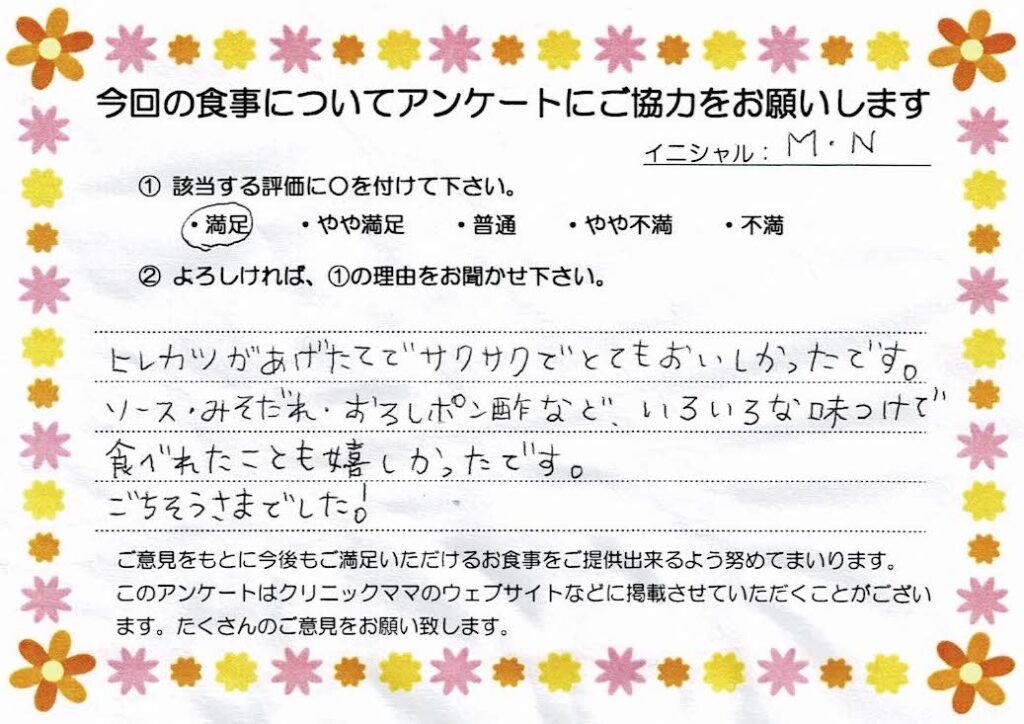 今回の食事についてアンケートにご協力をお願いします
イニシャル： M・N
① 該当する評価に〇を付けて下さい。
・満足 ・やや満足 ・普通 ・やや不満 ・不満
② よろしければ、①の理由をお聞かせ下さい。
ヒレカツがあげたてでサクサクでとてもおいしかったです。
ソース・みそだれ・おろしポン酢など、いろいろな味つけで
食べれたことも嬉しかったです。
ごちそうさまでした!
ご意見をもとに今後もご満足いただけるお食事をご提供出来るよう努めてまいります。
このアンケートはクリニックママのウェブサイトなどに掲載させていただくことがござい
ます。たくさんのご意見をお願い致します。